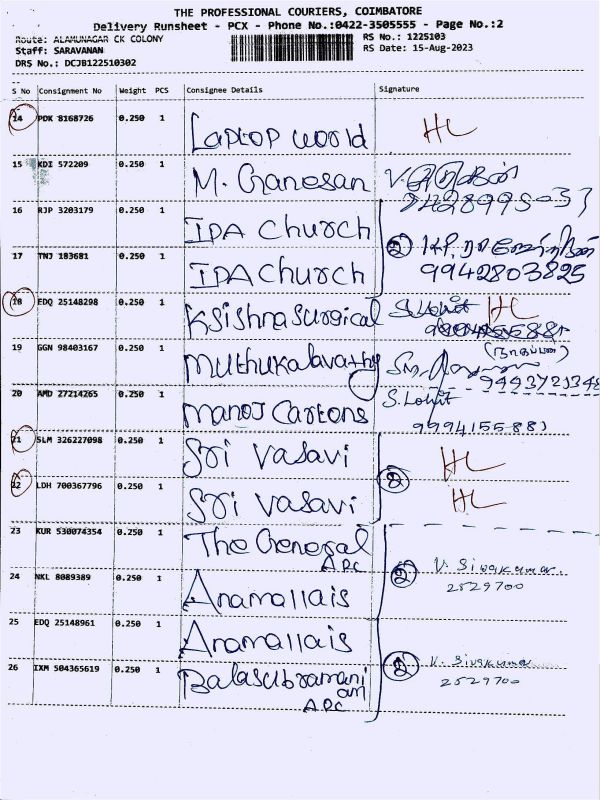 THE PROFESSIONAL COURIERS, COIMBATORE
Delivery Runsheet - PCX - Phone No.:0422-3505555 - Page No.:2
Route: ALAMUNAGAR CK COLONY RS No.: 1225103
Staff: SARAVANAN RS Date: 15-Aug-2023
DRS No.: DCJB122510302
S No Consignment No Weight PCS Consignee Details Signature
14 PDK 8168726 0.250 1 Laptop World HL
15 KDI 572209 0.250 1 M. Ganesan
16 RJP 3203179 0.250 1 IPA Church
17 TNJ 183681 0.250 1 IPA Church 2 9942803825
18 EDQ 25148298 0.250 1 Krishna Surgical S. Lohit HL
19 GGN 98403167 0.250 1 Muthukalavathy
20 AMD 27214265 0.250 1 Manoj Cartons S. Lohit
9994155881
21 SLM 326227098 0.250 1 Sri Vasavi HL
22 LDH 700367796 0.250 1 Sri Vasavi 2 HL
23 KUR 530074354 0.250 1 The General
APC
24 NKL 8089389 0.250 1 Anamallais 2 V. Sivakumar.
2529700
25 EDQ 25148961 0.250 1 Anamallais
26 IXM 504365619 0.250 1 Balasubramani
am
APC 2 V. Sivakumar
2529700